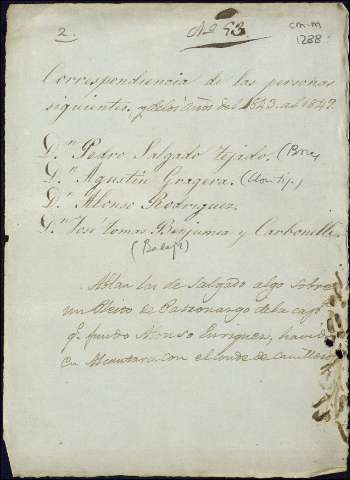 2.
Nº 53
CM.M
1288
Correspondencia de las personas
siguientes, y de los años del 1823. al 1827.
D.ⁿ Pedro Salgado tejado.
D.ⁿ Agustin Gragera.
D.ⁿ Alonso Rodriguez.
D.ⁿ José tomas Benjumea y Carbonell.
Ablan las de Salgado algo sobre
un Pleito de Patronazgo de la cap
q.ᵉ fundo Alonso Enriquez,
en Alcantara con el conde de Canillero